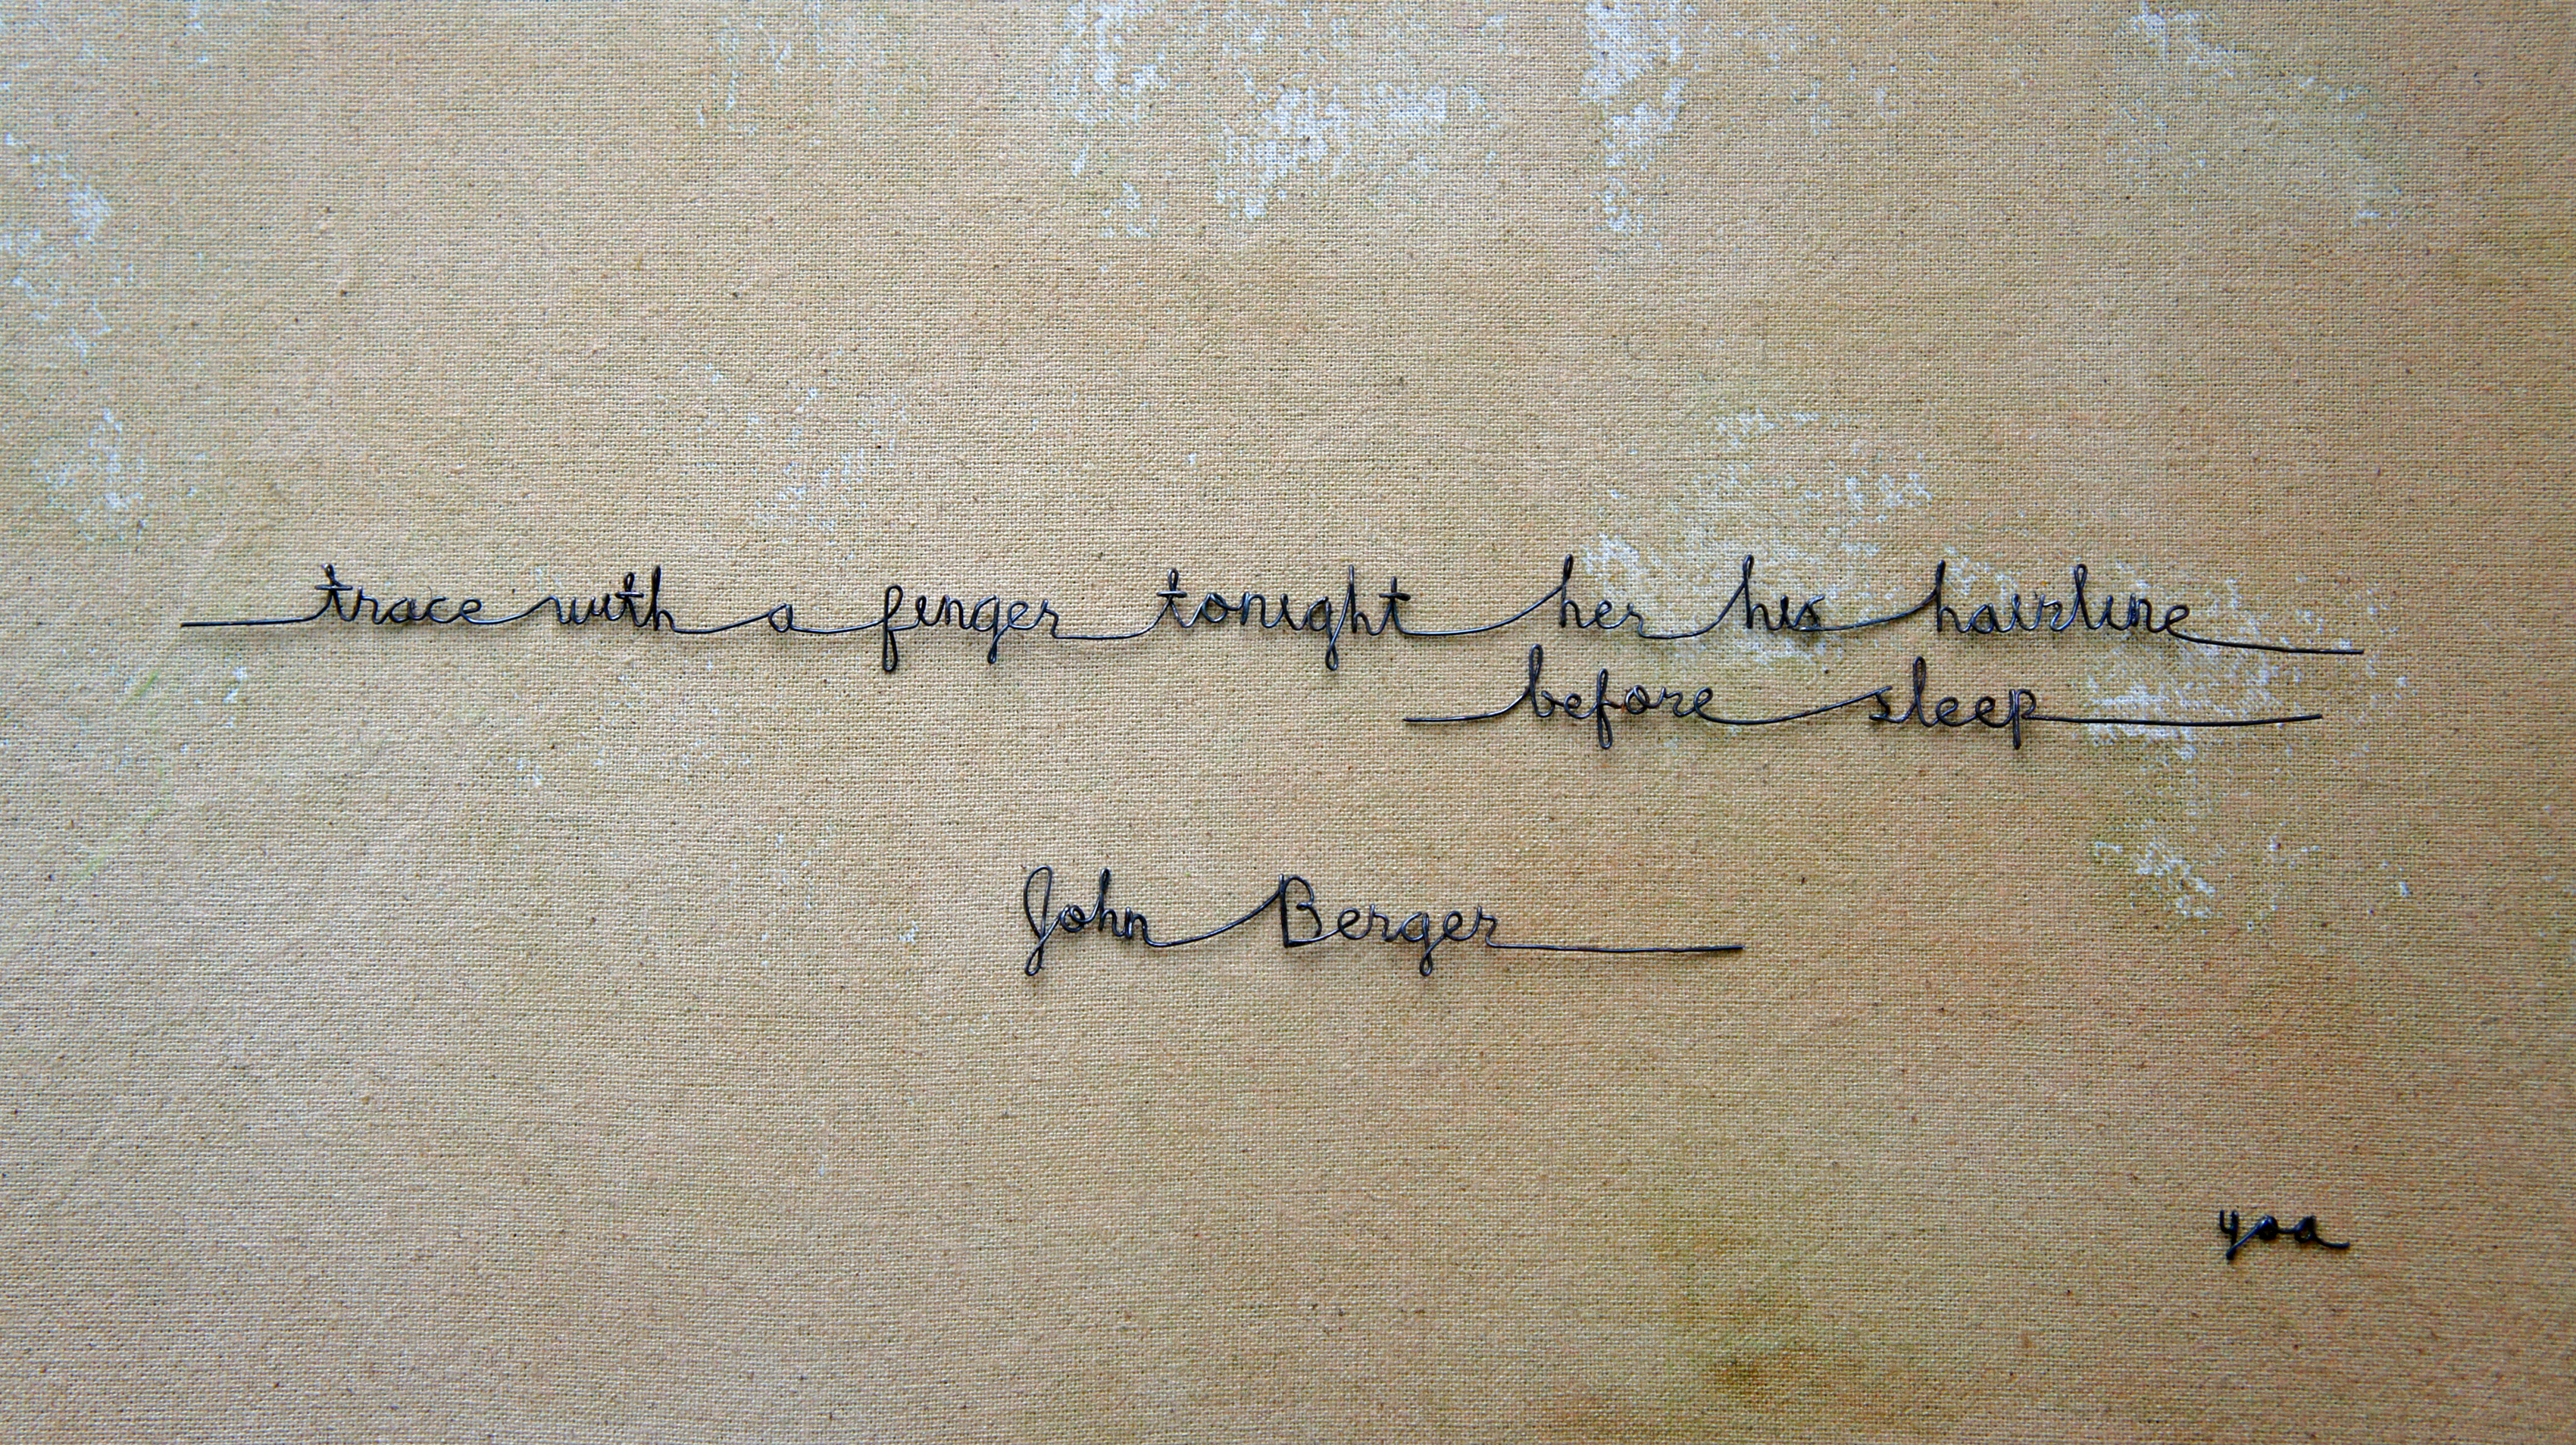 trace with a finger tonight her his hairline
before sleep
John Berger
yoa